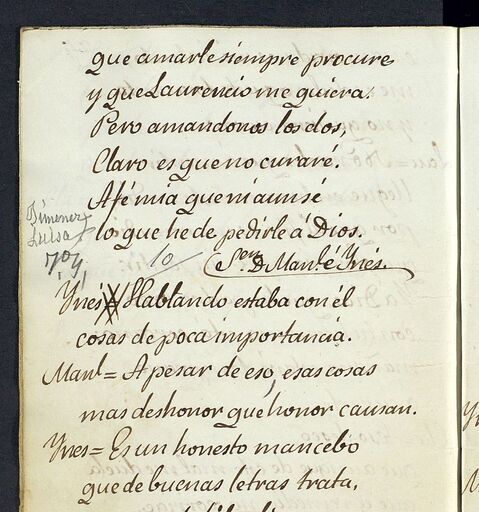 que amarle siempre procure
y que Laurencio me quiera.
Pero amandonos los dos,
Claro es que no curaré.
A fé mia que ni aun sé
lo que he de pedirle à Dios.
Dimenez
Luisa
10
Sen. D. Manl. é Ynés.
Ynés Hablando estaba con él
cosas de poca importancia.
Manl = A pesar de eso, esas cosas
mas deshonor que honor causan.
Ynes = Es un honesto mancebo
que de buenas letras trata,